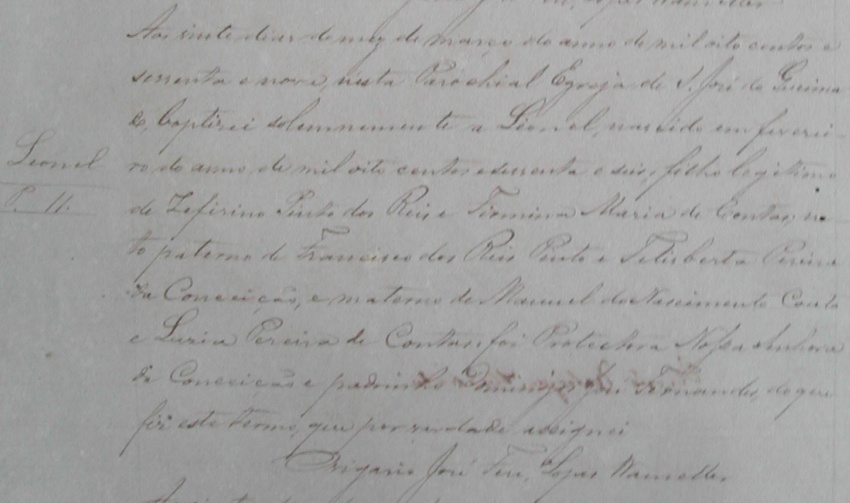 Aos vinte dias do mez de março do anno de mil oito centos e
sessenta e nove, nesta Parochial Egreja de S. José do
baptizei solemnemente a Lionel, nascido em feverei-
ro do anno de mil oito centos e sessenta e seis, filho legitimo
de Zefirino Pinto dos Reis e Firmina Maria de Contas; ne-
to paterno de Francisco dos Reis Pinto e Felisberta Pereira
da Conceição, e materno de Manuel do Nascimento
e Luzia Pereira de Contas: foi Protectora Nossa Senhora
da Conceição e padrinho Domingos José Fernandes, do que
fiz este termo, que por verdade assignei
Lionel
O Vigario José Lopes